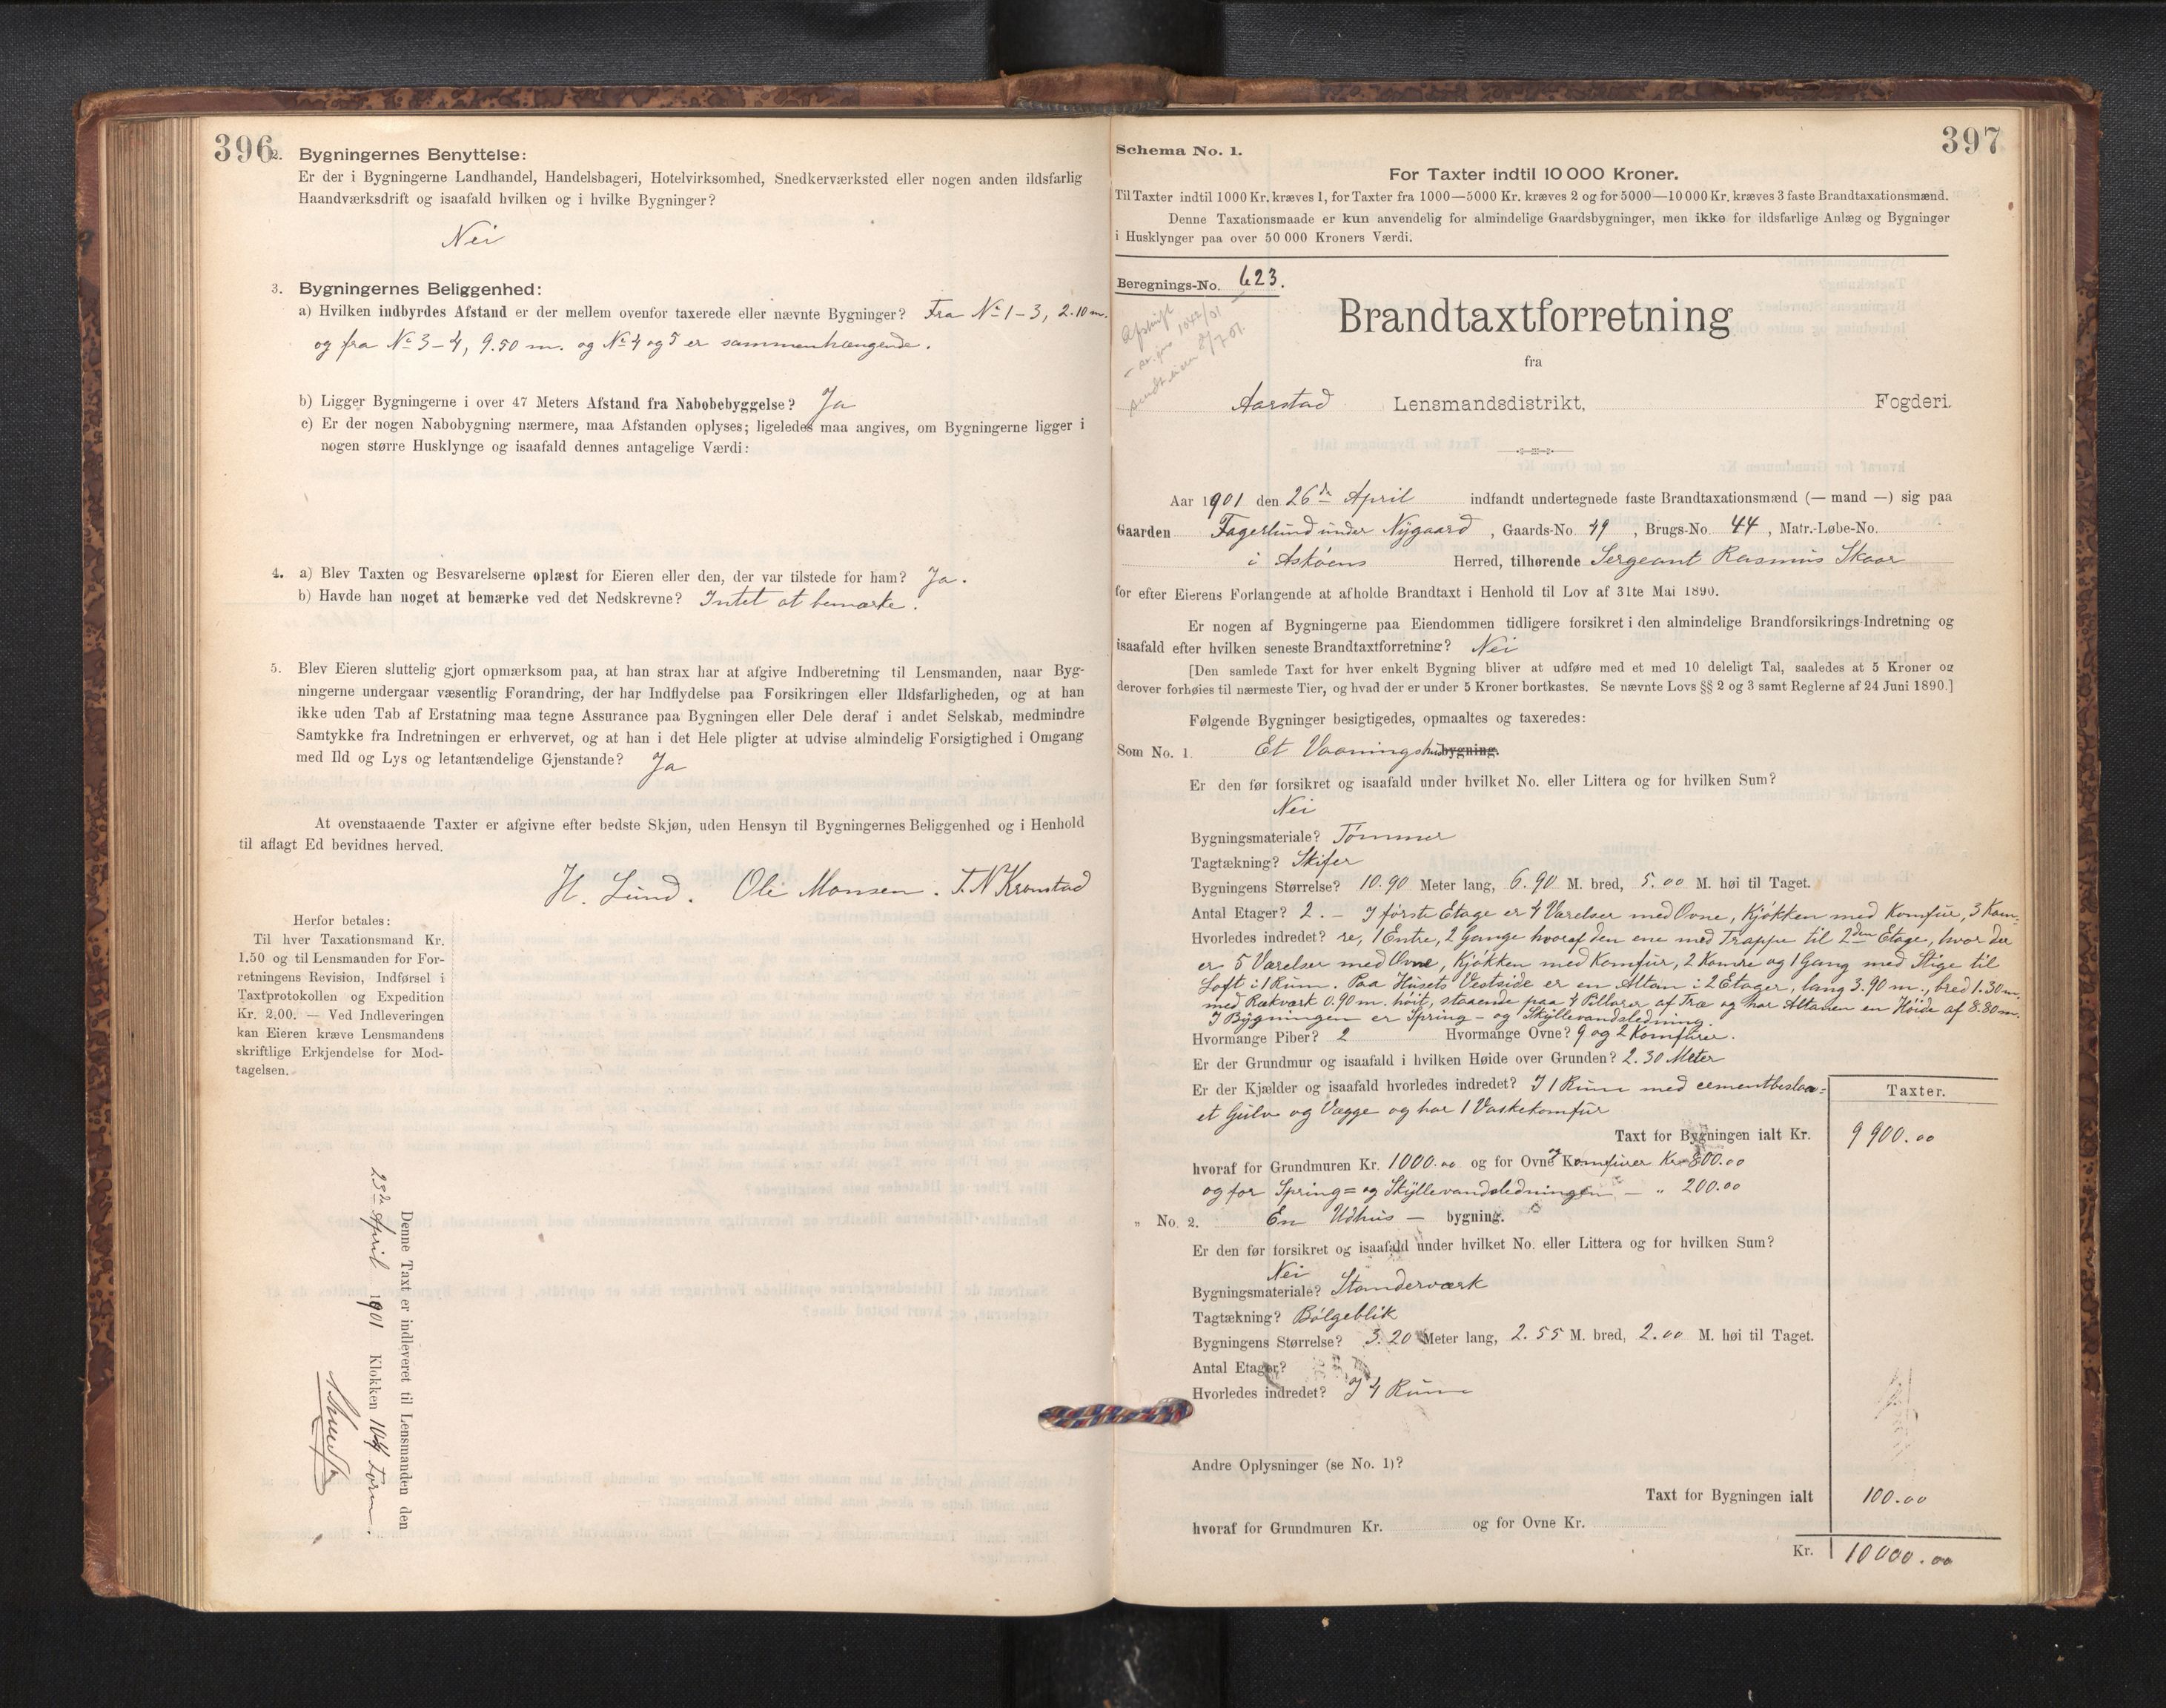 396
2. Bygningernes Benyttelse:
Er der i Bygningerne Landhandel, Handelsbageri, Hotelvirksomhed, Snedkerværksted eller nogen anden ildsfarlig
Haandværksdrift og isaafald hvilken og i hvilke Bygninger?
Nei
3. Bygningernes Beliggenhed:
a) Hvilken indbyrdes Afstand er der mellem ovenfor taxerede eller nævnte Bygninger? Fra No 1-3, 2.10 m.
og fra No 3-4, 9.50 m. og No 4 og 5 er sammenhængende.
b) Ligger Bygningerne i over 47 Meters Afstand fra Nabobebyggelse? Ja
c) Er der nogen Nabobygning nærmere, maa Afstanden oplyses; ligeledes maa angives, om Bygningerne ligger i
nogen større Husklynge og isaafald dennes antagelige Værdi:
4. a) Blev Taxten og Besvarelserne oplæst for Eieren eller den, der var tilstede for ham? Ja.
b) Havde han noget at bemærke ved det Nedskrevne? Intet at bemærke.
5. Blev Eieren sluttelig gjort opmærksom paa, at han strax har at afgive Indberetning til Lensmanden, naar Byg-
ningerne undergaar væsentlig Forandring, der har Indflydelse paa Forsikringen eller Ildsfarligheden, og at han
ikke uden Tab af Erstatning maa tegne Assurance paa Bygningen eller Dele deraf i andet Selskab, medmindre
Samtykke fra Indretningen er erhvervet, og at han i det Hele pligter at udvise almindelig Forsigtighed i Omgang
med Ild og Lys og letantændelige Gjenstande? Ja
At ovenstaaende Taxter er afgivne efter bedste Skjøn, uden Hensyn til Bygningernes Beliggenhed og i Henhold
til aflagt Ed bevidnes herved.
H. Lund. Ole Monsen. T. N Kronstad
Herfor betales:
Til hver Taxationsmand Kr.
1.50 og til Lensmanden for For-
retningens Revision, Indførsel i
Taxtprotokollen og Expedition
Kr. 2,00. — Ved Indleveringen
kan Eieren kræve Lensmandens
skriftlige Erkjendelse for Mod-
tagelsen.
Denne Taxt er indleveret til Lensmanden den
1901 Klokken
397
Schema No. 1.
For Taxter indtil 10 000 Kroner.
Til Taxter indtil 1000 Kr. kræves 1, for Taxter fra 1000—5000 Kr. kræves 2 og for 5000—10 000 Kr. kræves 3 faste Brandtaxationsmænd.
Denne Taxationsmaade er kun anvendelig for almindelige Gaardsbygninger, men ikke for ildsfarlige Anlæg og Bygninger
i Husklynger paa over 50 000 Kroners Værdi.
Beregnings-No. 623.
Brandtaxtforretning
fra
Aarstad Lensmandsdistrikt, Fogderi.
Aar 1901 den 26de April indfandt undertegnede faste Brandtaxationsmænd (— mand —) sig paa
Gaarden Fagerlund under Nygaard, Gaards-No. 49, Brugs-No. 44, Matr.-Løbe-No.
i Askøens Herred, tilhørende Sergeant Rasmus Skaar
for efter Eierens Forlangende at afholde Brandtaxt i Henhold til Lov af 31te Mai 1890.
Er nogen af Bygningerne paa Eiendommen tidligere forsikret i den almindelige Brandforsikrings-Indretning og
isaafald efter hvilken seneste Brandtaxtforretning? Nei
[Den samlede Taxt for hver enkelt Bygning bliver at udføre med et med 10 deleligt Tal, saaledes at 5 Kroner og
derover forhøies til nærmeste Tier, og hvad der er under 5 Kroner bortkastes. Se nævnte Lovs §§ 2 og 3 samt Reglerne af 24 Juni 1890.]
Følgende Bygninger besigtigedes, opmaaltes og taxeredes:
Som No. 1. Et Vaaningshus bygning.
Er den før forsikret og isaafald under hvilket No. eller Littera og for hvilken Sum?
Nei
Bygningsmateriale? Tømmer
Tagtækning? Skifer
Bygningens Størrelse? 10.90 Meter lang, 6.90 M. bred, 5.00 M. høi til Taget.
Antal Etager? 2. - I første Etage er 4 Værelser med Ovne, Kjøkken med Komfur, 3 Kam=
Hvorledes indredet? re, 1 Entre, 2 Gange hvoraf den ene med Trappe til 2den Etage, hvor der
er 5 Værelser med Ovne, Kjøkken med Komfur, 2 Kamre og 1 Gang med Stige til
Loft i 1 Rum. Paa Husets Vestside er en Altan i 2 Etager, lang 3.90 m., bred 1.30 m.
med Rækværk 0.90 m. høit, staaende paa 4 Pillarer af Træ og har Altanen en Høide af 8.80 m.
I Bygningen er Spring- og Skyllevandsledning.
Hvormange Piber? 2 Hvormange Ovne? 9 og 2 Komfurer.
Er der Grundmur og isaafald i hvilken Høide over Grunden? 2.30 Meter
Er der Kjælder og isaafald hvorledes indredet? I 1 Rum med cementbeslaa=
et Gulv og Vægge og har 1 Vaskekomfur
Taxter.
Taxt for Bygningen ialt Kr. 9 900.00
hvoraf for Grundmuren Kr. 1000.00 og for Ovne Komfurer Kr 800.00
og for Spring= og Skyllevandsledningen — " 200.00
" No. 2. En Udhus — bygning.
Er den før forsikret og isaafald under hvilket No. eller Littera og for hvilken Sum?
Nei
Bygningsmateriale? Standerværk
Tagtækning? Bølgeblik
Bygningens Størrelse? 3.20 Meter lang, 2.55 M. bred, 2.00 M. høi til Taget.
Antal Etager?
Hvorledes indredet? I 4 Rum
Andre Oplysninger (se No. 1)?
Taxt for Bygningen ialt 100.00
hvoraf for Grundmuren Kr. og for Ovne Kr.
Kr. 10000.00